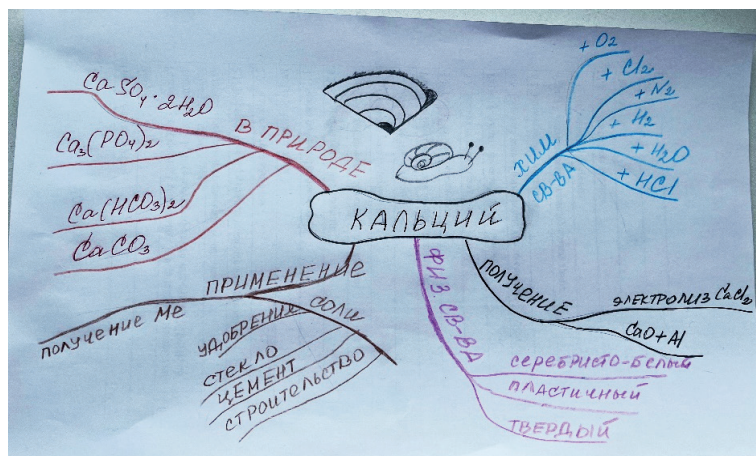 КАЛЬЦИЙ
В ПРИРОДЕ
CaSO₄·2H₂O
Ca₃(PO₄)₂
Ca(HCO₃)₂
CaCO₃
ХИМ
СВ-ВА
+ O₂
+ Cl₂
+ N₂
+ H₂
+ H₂O
+ HCl
ПОЛУЧЕНИЕ
ЭЛЕКТРОЛИЗ CaCl₂
CaO+Al
ФИЗ. СВ-ВА
СЕРЕБРИСТО-БЕЛЫЙ
ПЛАСТИЧНЫЙ
ТВЕРДЫЙ
ПРИМЕНЕНИЕ
ПОЛУЧЕНИЕ Ме
СОЛИ
УДОБРЕНИЕ
СТЕКЛО
ЦЕМЕНТ
СТРОИТЕЛЬСТВО